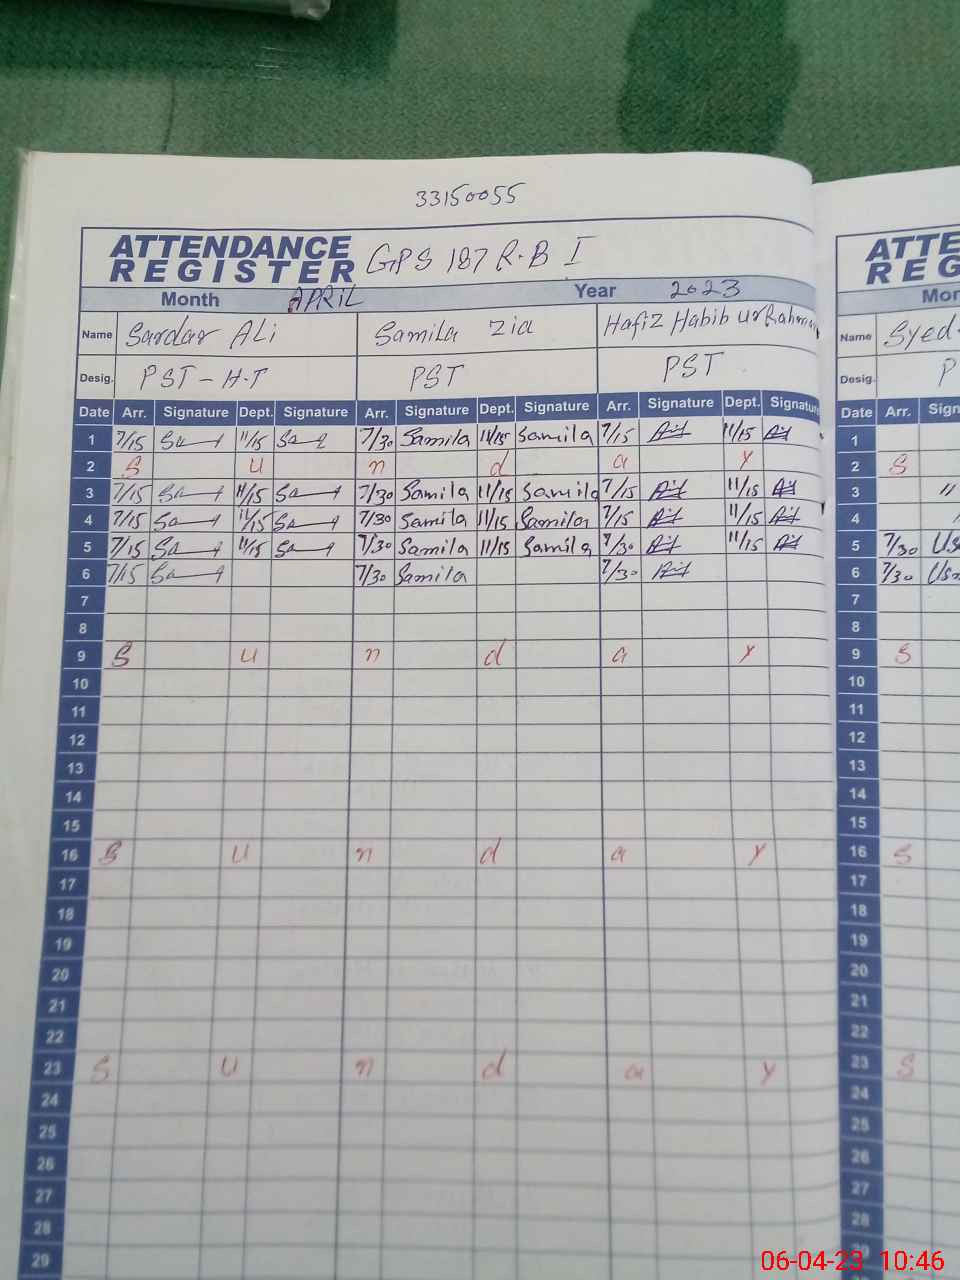 33150055
ATTENDANCE REGISTER GPS 187 R.B I
Month APRIL Year 2023
Name Sardar Ali Samila Zia Hafiz Habib ur Rahman
Desig. PST - H.T PST PST
Date Arr. Signature Dept. Signature Arr. Signature Dept. Signature Arr. Signature Dept. Signature
1 7/15 11/15 7/30 Samila 11/15 Samila 7/15 11/15
2 S u n d a y
3 7/15 11/15 7/30 Samila 11/15 Samila 7/15 11/15
4 7/15 11/15 7/30 Samila 11/15 Samila 7/15 11/15
5 7/15 11/15 7/30 Samila 11/15 Samila 7/30 11/15
6 7/15 7/30 Samila 7/30
7
8
9 S u n d a y
10
11
12
13
14
15
16 S u n d a y
17
18
19
20
21
22
23 S u n d a y
24
25
26
27
28
29
ATTE
REG
Mor
Name Syed
Desig. P
Date Arr. Sign
1
2 S
3 "
4
5 7/30
6 7/30
7
8
9 S
10
11
12
13
14
15
16 S
17
18
19
20
21
22
23 S
24
25
26
27
28
06-04-23 10:46